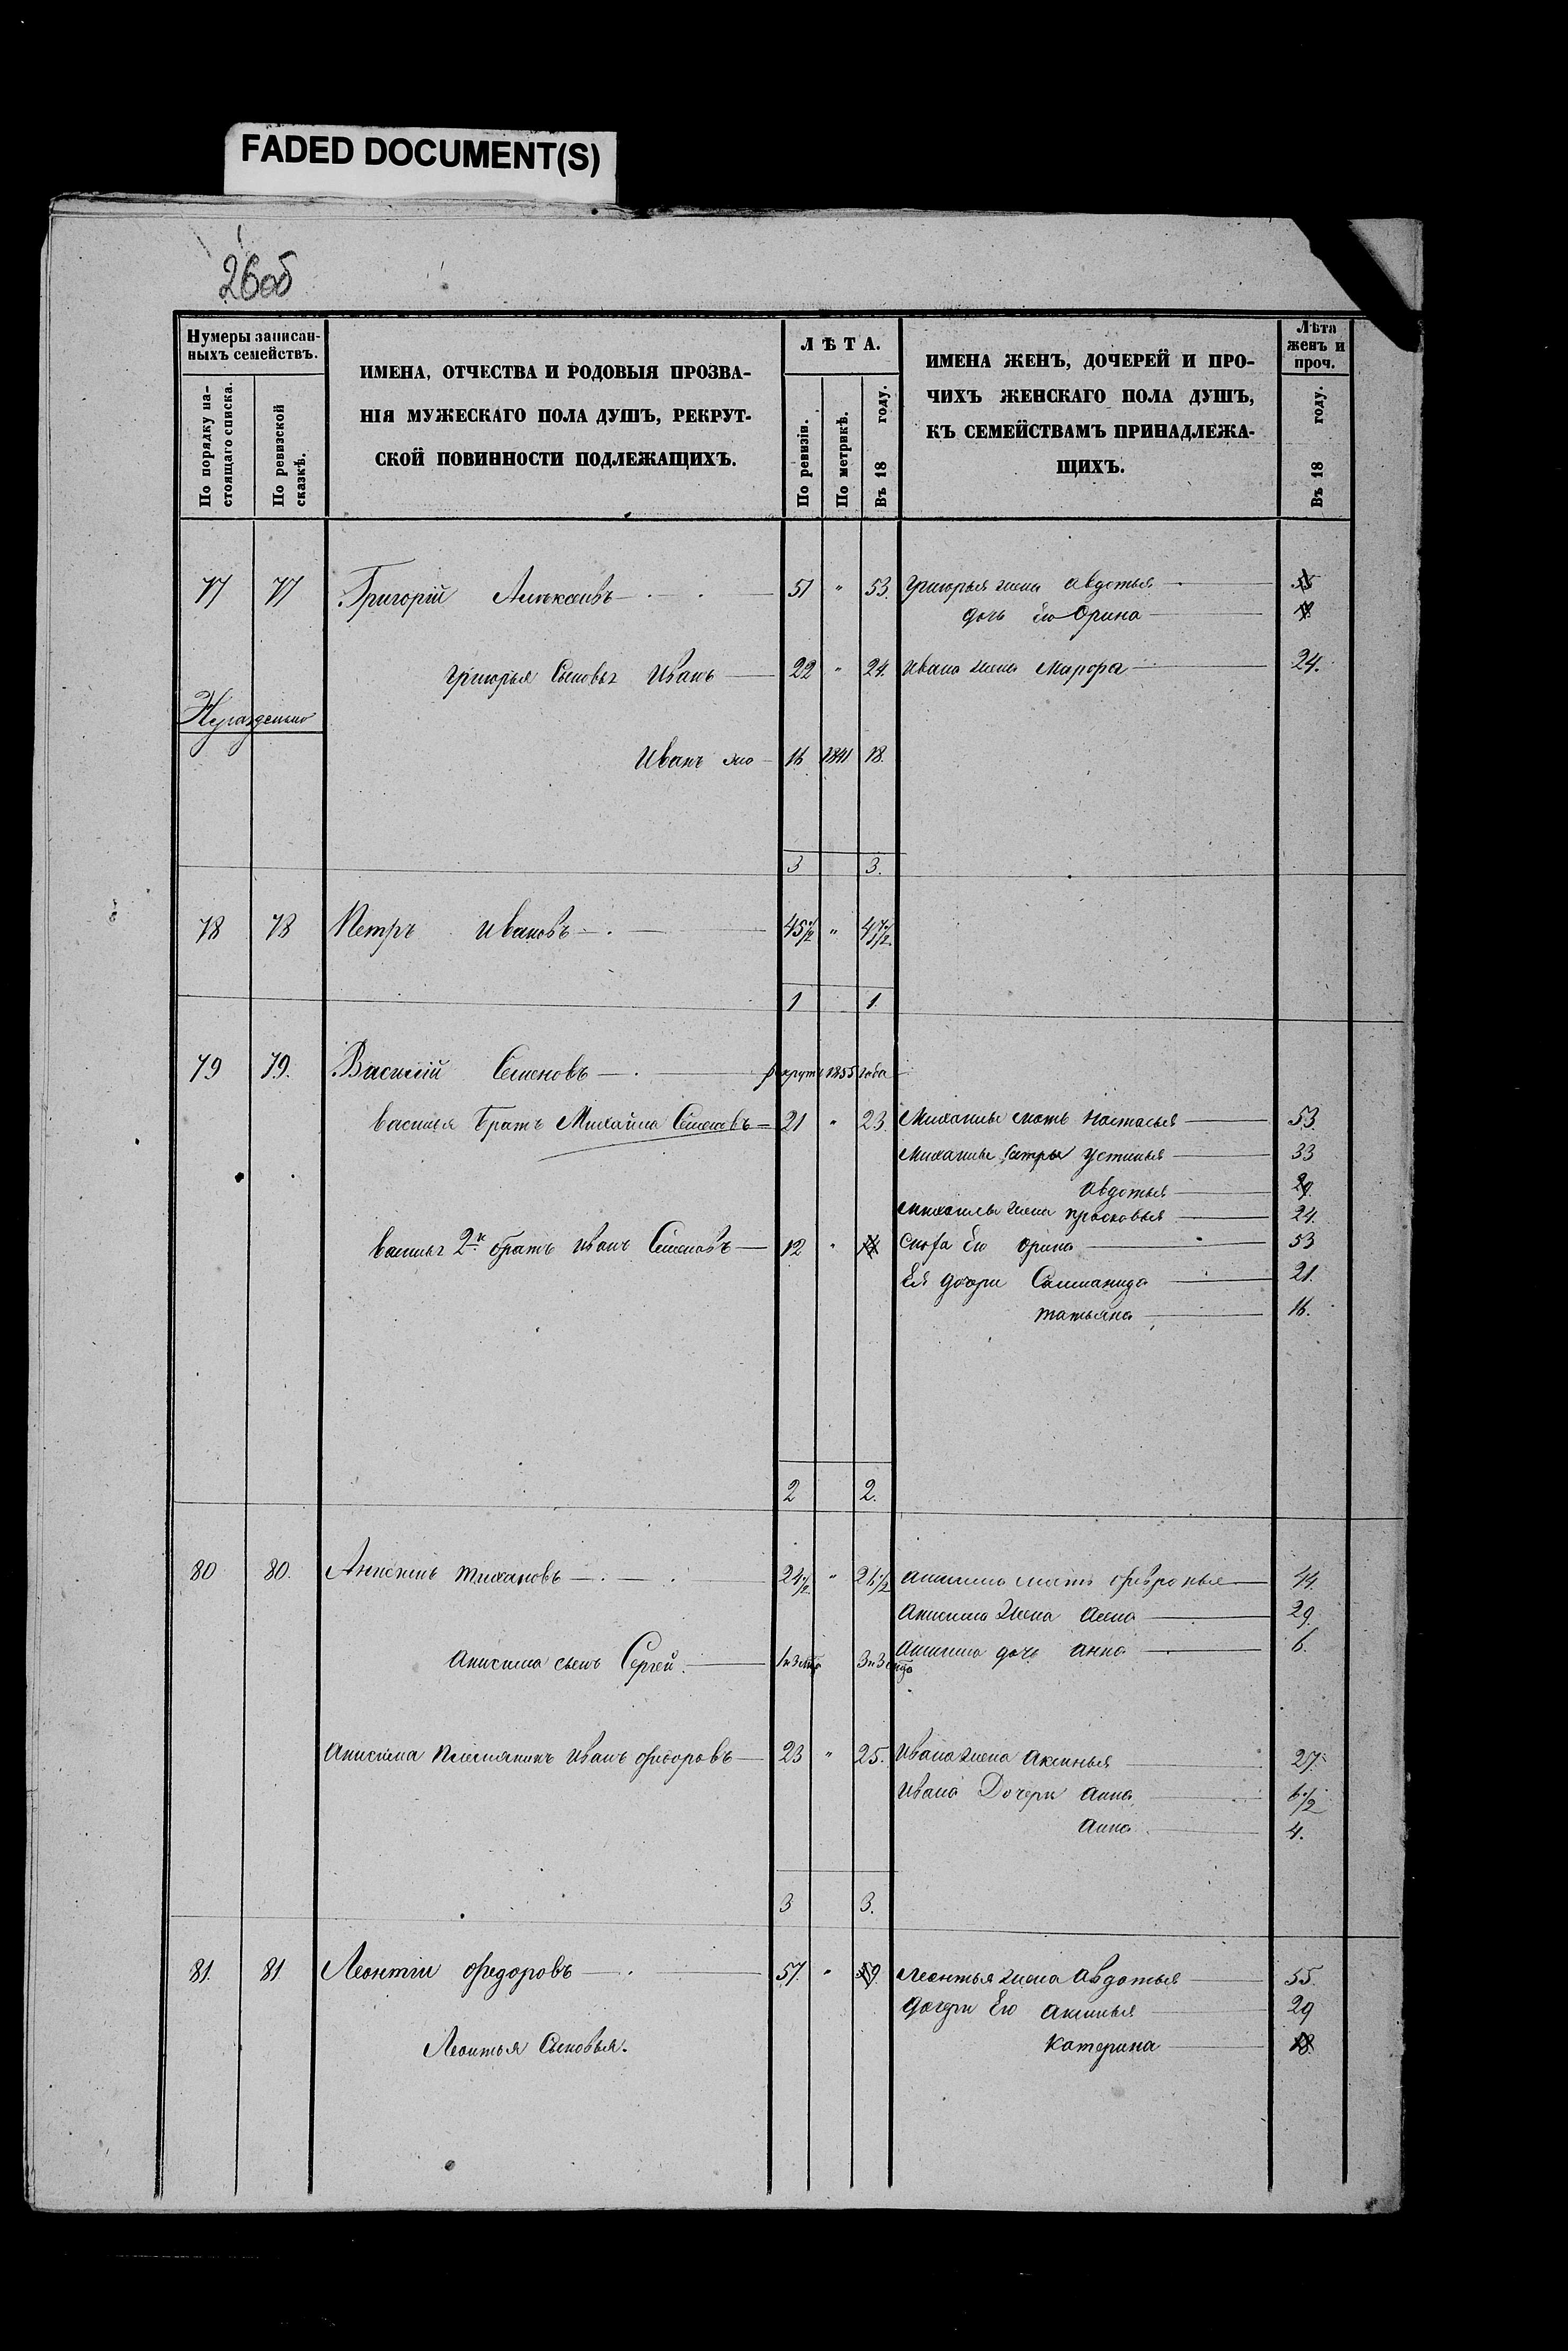 FADED DOCUMENT(S)
26об
Нумеры записан-
ныхъ семействъ.
По порядку на-
стоящаго списка.
По ревизской
сказкѣ.
ИМЕНА, ОТЧЕСТВА И РОДОВЫЯ ПРОЗВА-
НІЯ МУЖЕСКАГО ПОЛА ДУШЪ, РЕКРУТ-
СКОЙ ПОВИННОСТИ ПОДЛЕЖАЩИХЪ.
ЛѢТА.
По ревизіи.
По метрикѣ.
Въ 18 году.
ИМЕНА ЖЕНЪ, ДОЧЕРЕЙ И ПРО-
ЧИХЪ ЖЕНСКАГО ПОЛА ДУШЪ,
КЪ СЕМЕЙСТВАМЪ ПРИНАДЛЕЖА-
ЩИХЪ.
Лѣта
женъ и
проч.
Въ 18 году.
77 77 Григорій Алексѣевъ 51 " 53. Григорья жена Авдотья 55
дочь Его Орина
Григорья Сыновья Иванъ 22 " 24. Ивана жена Марфа 24.
Иванъ 16 1841 18.
3 3.
78 78 Петръ Ивановъ 45 1/2 " 47 1/2
1 1.
79 79. Василій Семеновъ рекрутъ 1855 года
Василья Братъ Михайла Семеновъ 21 " 23. Михайлы мать Настасья 53.
Михайлы Сестры Устинья 33
Авдотья 29.
Михайлы жена Прасковья 24.
Васильѧ 2й братъ Иванъ Семеновъ 12 " Сноха Его Орина 53
Ея дочери Саламанида 21.
Татьяна 16.
2 2.
80 80. Анисимъ Тихановъ 24 1/2 " 26 1/2 Анисима мать Февронья 44.
Анисима Жена Анна 29.
Анисима сынъ Сергей 1 и 3 мѣс 3 и 3 мѣс Анисима дочь Анна 6.
Анисима Племянникъ Иванъ Федоровъ 23 " 25. Ивана жена Аксинья 27.
Ивана Дочери Анна 6 1/2
Анна 4.
3 3.
81. 81 Леонтій Федоровъ 57. " 59. Леонтья жена Авдотья 55.
Дочери Его Аксинья 29
Леонтья Сыновья. Катерина 18.